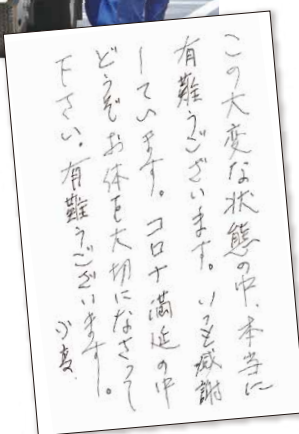 この大変な状態の中、本当に
有難うございます。いつも感謝
しています。コロナ満延の中
どうぞお体を大切になさって
下さい。有難うございます。